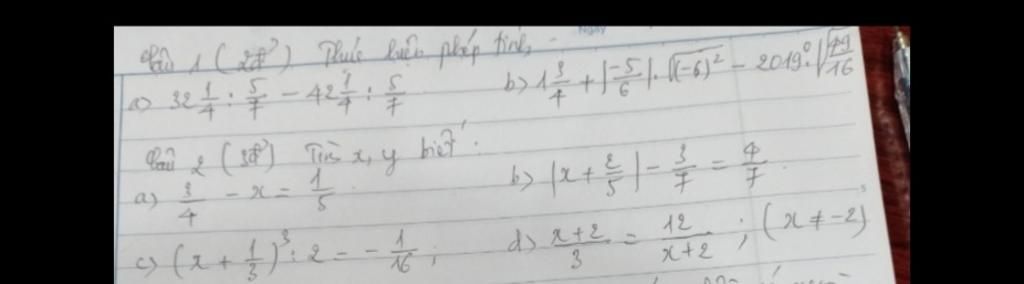 Ngày
Câu 1 (2đ) Thực hiện phép tính,
a) 32 1/4 : 5/7 - 42 1/4 : 5/7 b) 1 3/4 + |-5/6| . √(-6)² - 2019⁰ . √49/16
Câu 2 (3đ) Tìm x, y biết :
a) 3/4 - x = 1/5 b) |x + 2/5| - 3/7 = 4/7
c) (x + 1/3)³ : 2 = - 1/16 ; d) x+2/3 = 12/x+2 ; (x ≠ -2)